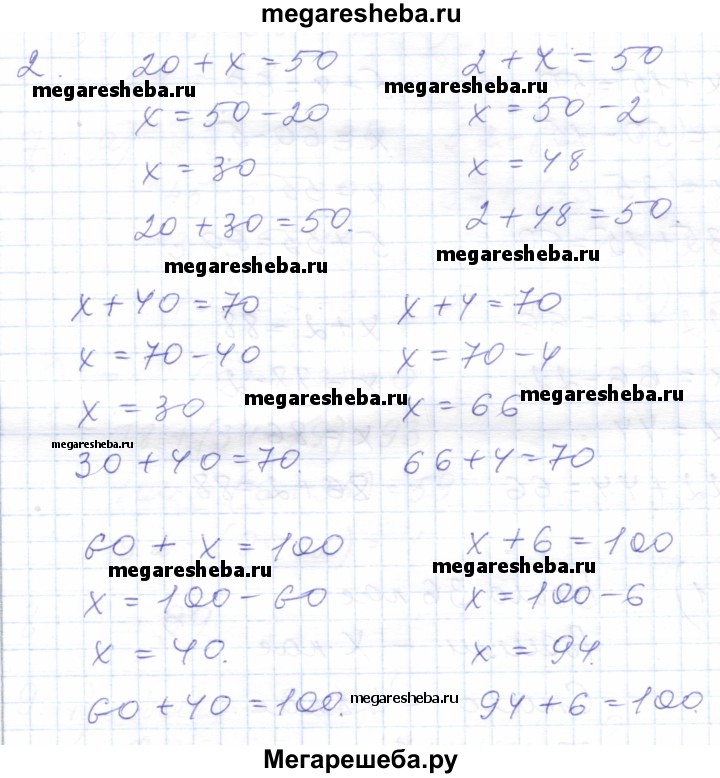 megaresheba.ru
2. 20 + x = 50 2 + x = 50
megaresheba.ru megaresheba.ru
x = 50 - 20 x = 50 - 2
x = 30 x = 48
20 + 30 = 50. 2 + 48 = 50.
megaresheba.ru megaresheba.ru
x + 40 = 70 x + 4 = 70
x = 70 - 40 x = 70 - 4
x = 30 megaresheba.ru x = 66 megaresheba.ru
megaresheba.ru
30 + 40 = 70. 66 + 4 = 70
60 + x = 100 x + 6 = 100
megaresheba.ru megaresheba.ru
x = 100 - 60 x = 100 - 6
x = 40. x = 94.
60 + 40 = 100. megaresheba.ru 94 + 6 = 100.
Мегарешеба.ру